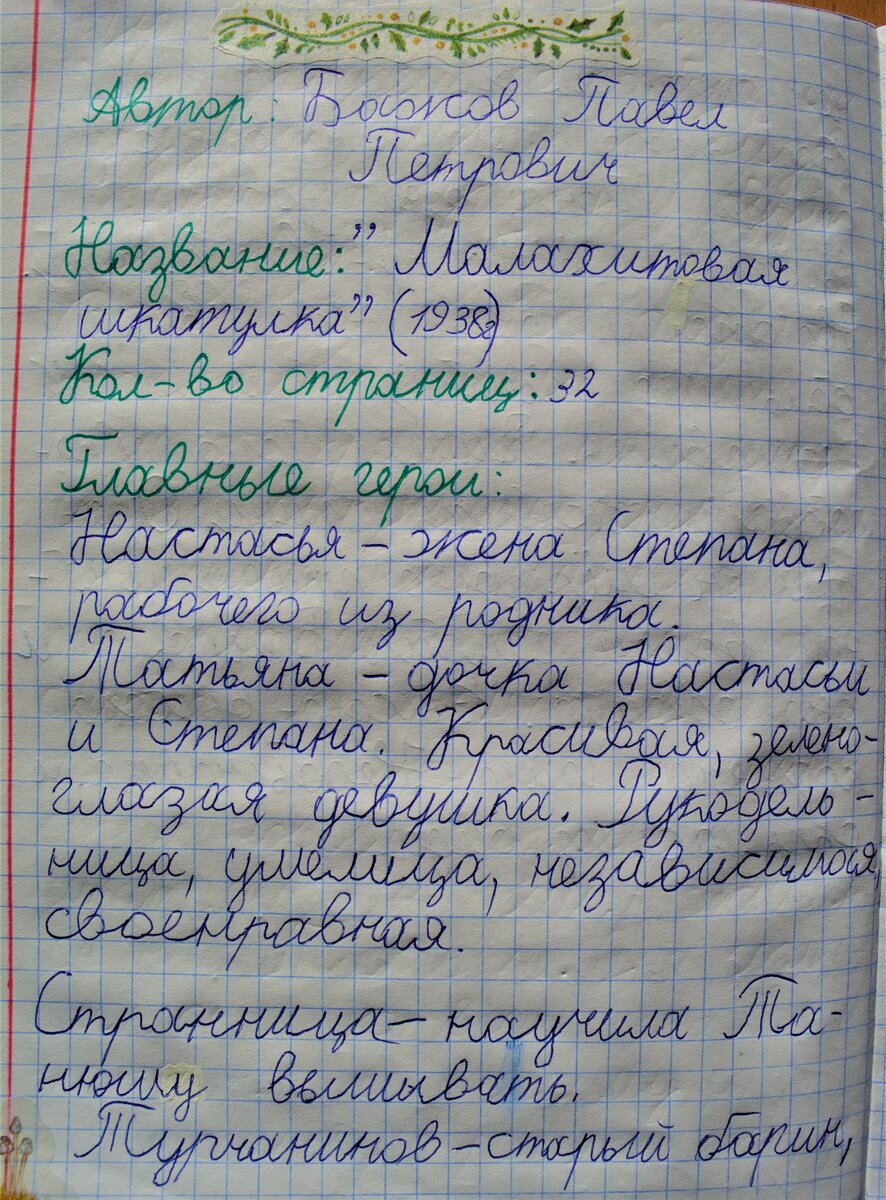 Автор: Бажов Павел
Петрович
Название:" Малахитовая
шкатулка" (1938г)
Кол-во страниц: 32
Главные герои:
Настасья – жена Степана,
рабочего из родника.
Татьяна – дочка Настасьи
и Степана. Красивая, зелено-
глазая девушка. Рукодель-
ница, умелица, независимая,
своенравная.
Странница – научила Та-
нюшу вышивать.
Турчанинов – старый барин,